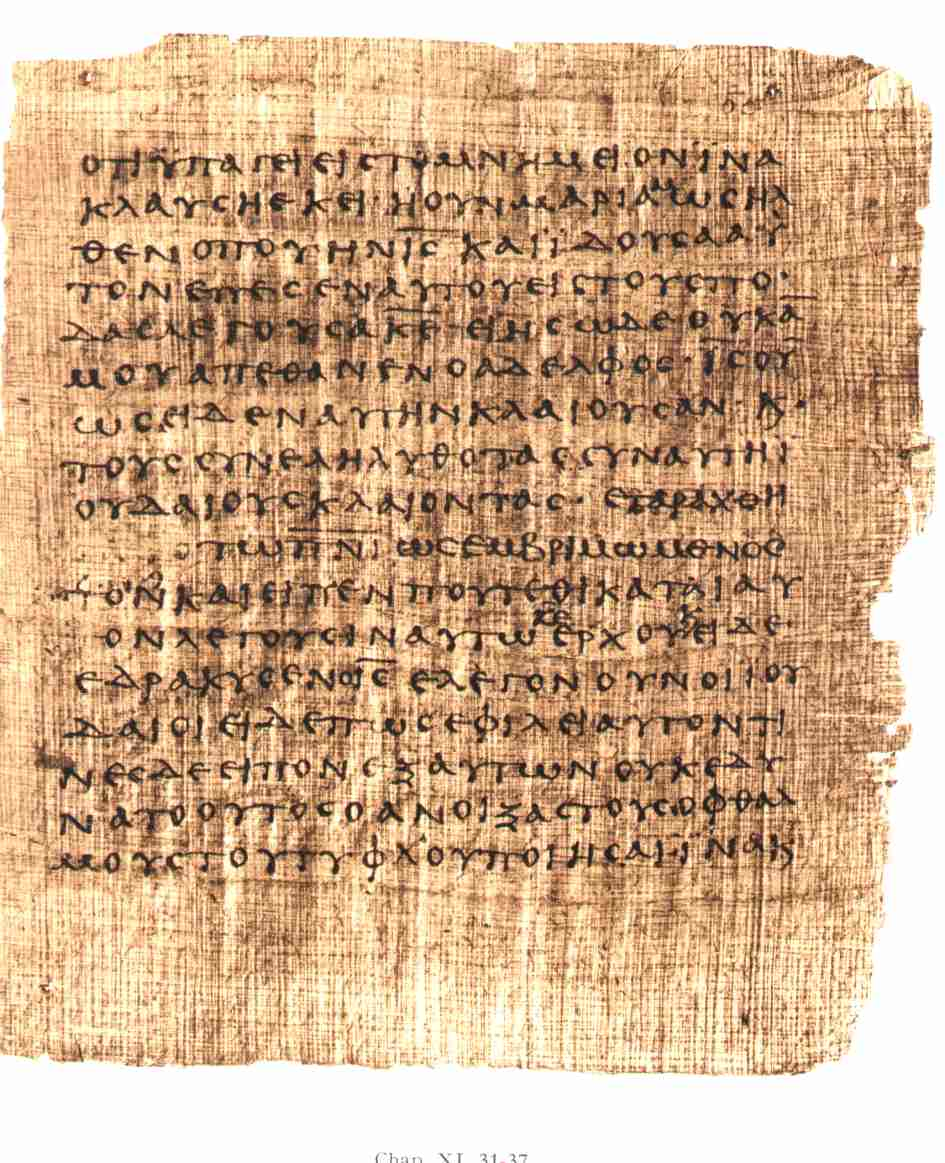 ΟΤΙΫΠΑΓΕΙΕΙϹΤΟΜΝΗΜΕΙΟΝΪΝΑ
ΚΛΑΥϹΗΕΚΕΙ·ΗΟΥΝΜΑΡΙΑΜΩϹΗΛ
ΘΕΝΟΠΟΥΗΝΙ̅Ϲ̅ΚΑΙΪΔΟΥϹΑΑΥ
ΤΟΝΕΠΕϹΕΝΑΥΤΟΥΕΙϹΤΟΥϹΠΟ·
ΔΑϹΛΕΓΟΥϹΑΚ̅Ε̅·ΕΙΗϹΩΔΕΟΥΚΑ̅
ΜΟΥΑΠΕΘΑΝΕΝΟΑΔΕΛΦΟϹ·Ι̅Ϲ̅ΟΥ̅
ΩϹΕΙΔΕΝΑΥΤΗΝΚΛΑΙΟΥϹΑΝ·Κ·
ΤΟΥϹϹΥΝΕΛΗΛΥΘΟΤΑϹϹΥΝΑΥΤΗΪ
ΟΥΔΑΙΟΥϹΚΛΑΙΟΝΤΑϹ·ΕΤΑΡΑΧΘΗ
ΤΩΠ̅Ν̅Ι̅ΩϹΕΜΒΡΙΜΩΜΕΝΟϹ
ΚΑΙΕΙΠΕΝΠΟΥΤΕΘΙΚΑΤΑΙΑΥ
ΟΝΛΕΓΟΥϹΙΝΑΥΤΩΚ̅Ε̅ΕΡΧΟΥΚΕΙΔΕ·
ΕΔΡΑΚΥϹΕΝΟΙ̅Ϲ̅ΕΛΕΓΟΝΟΥΝΟΙΙΟΥ
ΔΑΙΟΙΕΙΔΕΠΩϹΕΦΙΛΕΙΑΥΤΟΝΤΙ
ΝΕϹΔΕΕΙΠΟΝΕΞΑΥΤΩΝΟΥΚΕΔΥ
ΝΑΤΟΟΥΤΟϹΟΑΝΟΙΞΑϹΤΟΥϹΟΦΘΑΛ
ΜΟΥϹΤΟΥΤΥΦΛΟΥΠΟΙΗϹΑΙΪΝΑΚ
Chap. XI, 31-37